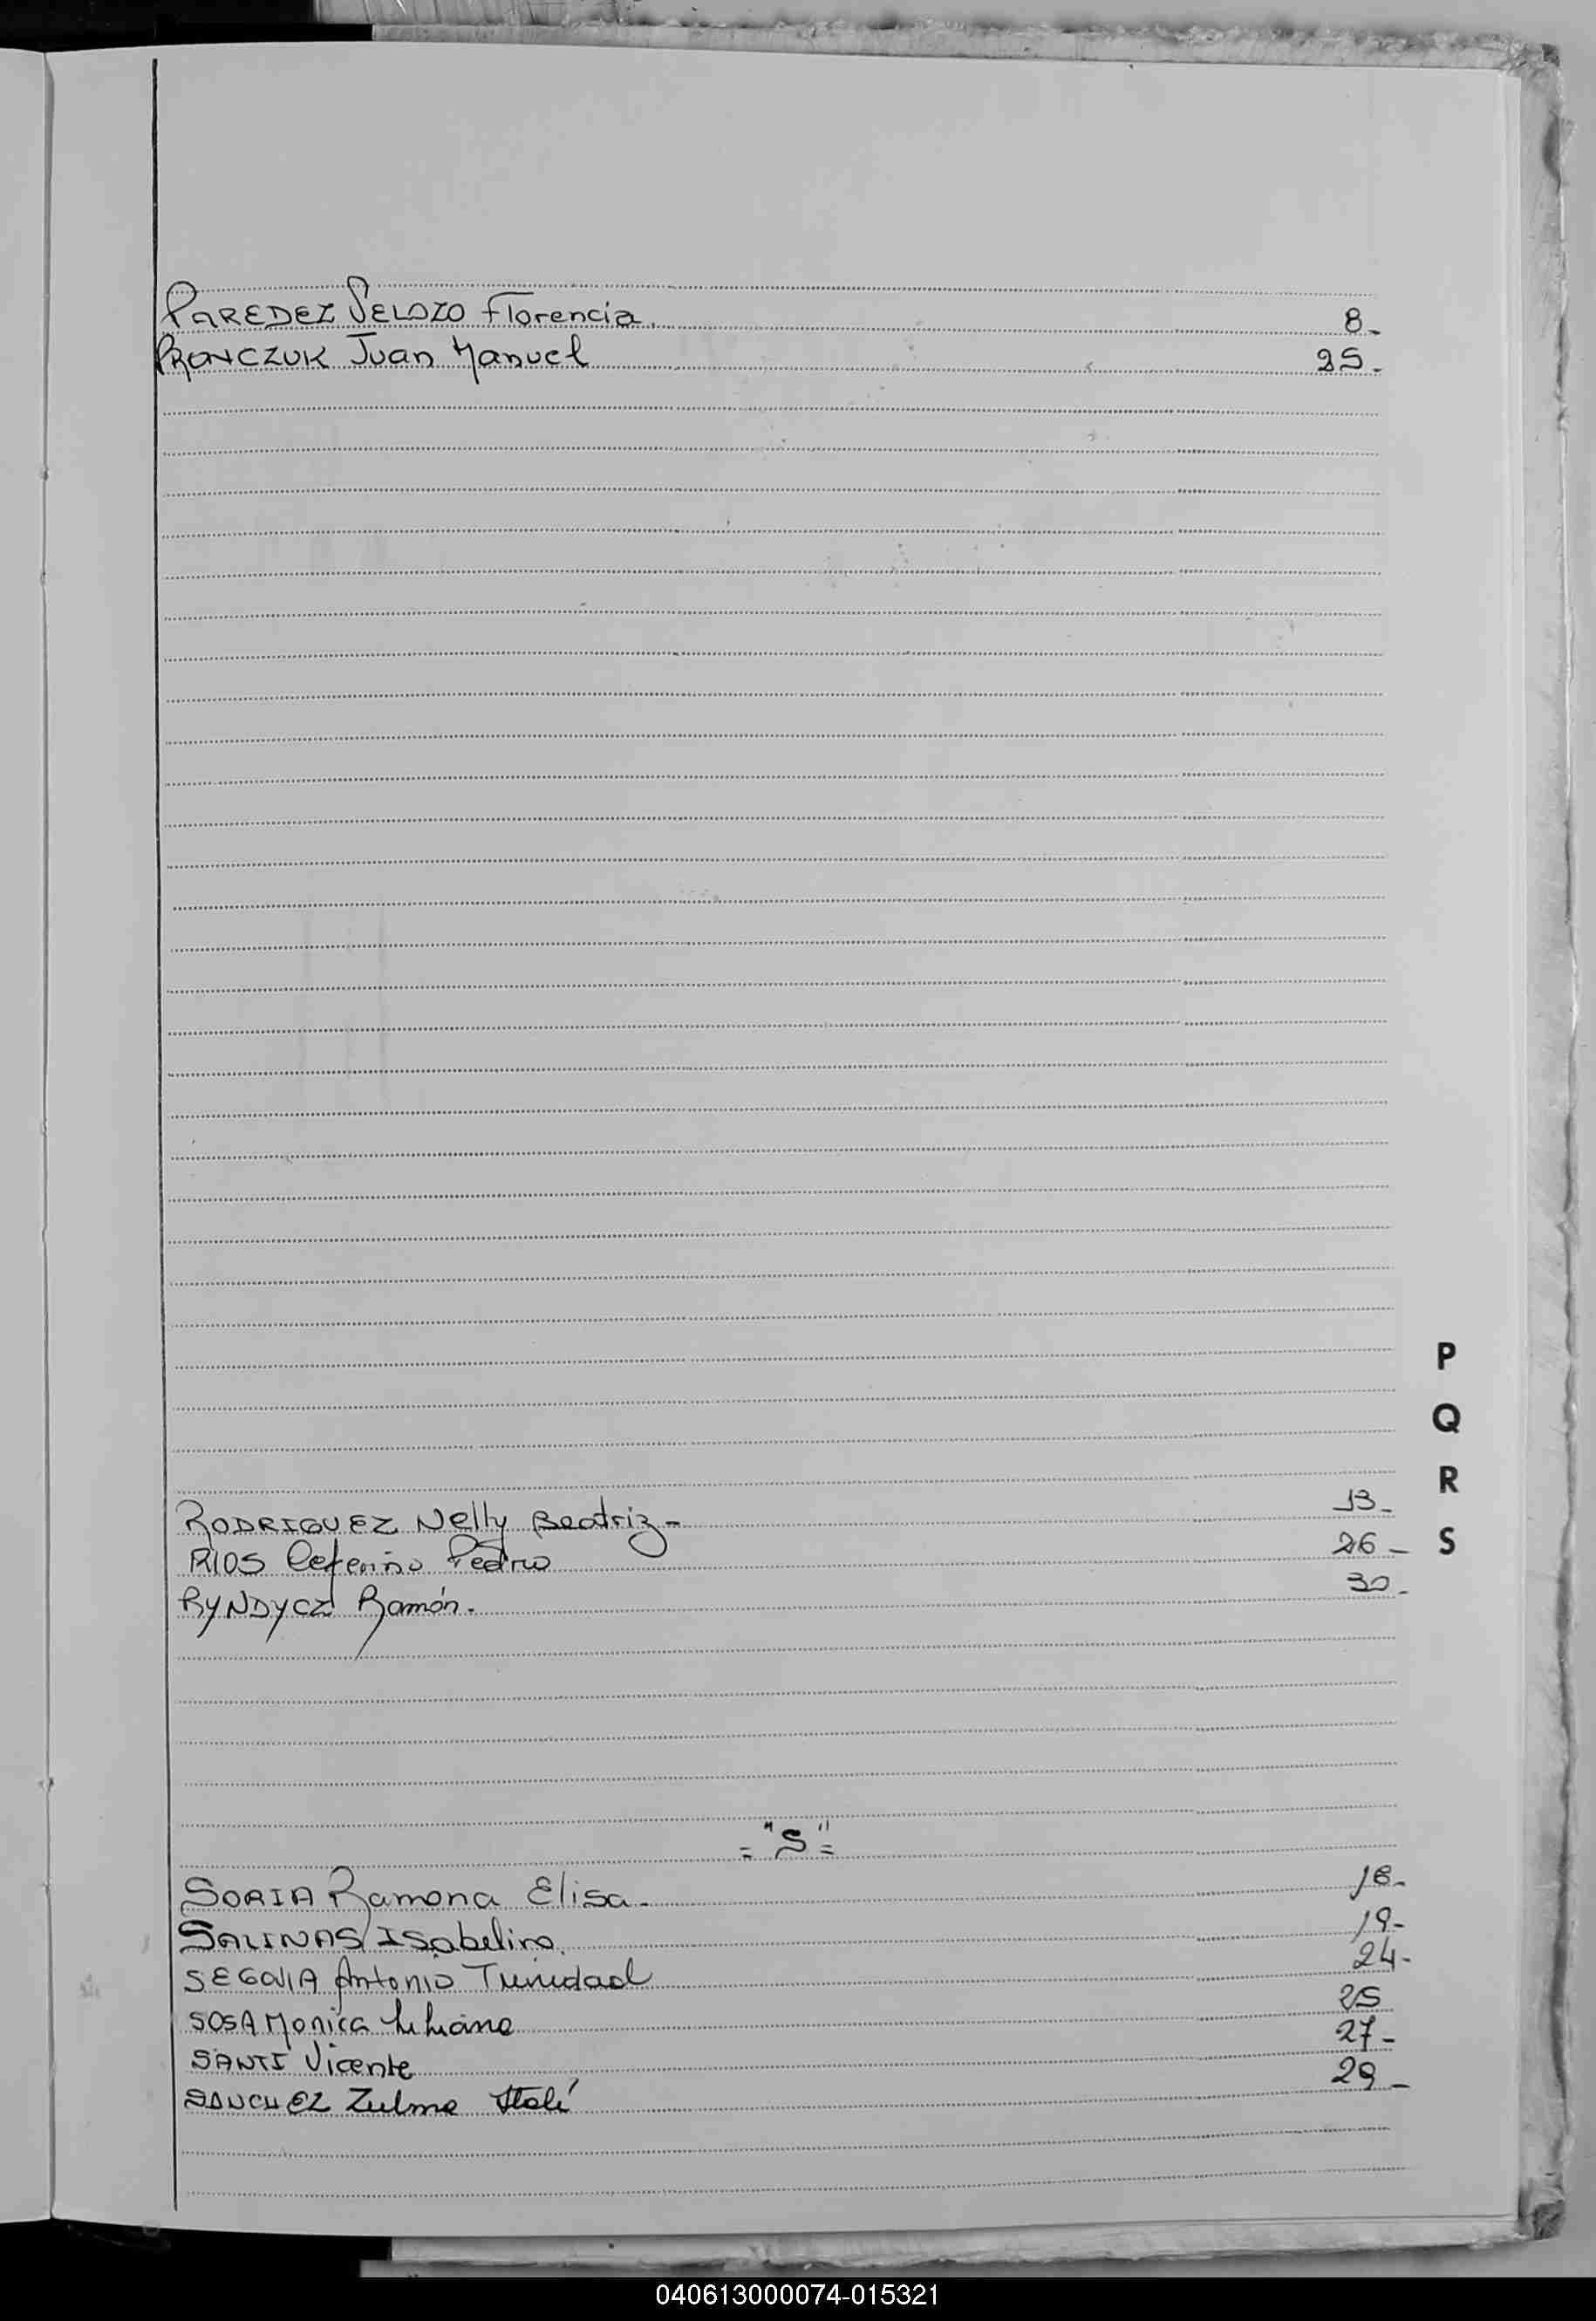 PAREDEZ VELOZO Florencia. 8-
PRONCZUK Juan Manuel 25-
P
Q
R
RODRIGUEZ Nelly Beatriz- 13-
S
RIOS Ceferino Pedro 26-
RYNDYCZ Ramón. 30-
="S"=
SORIA Ramona Elisa- 18-
SALINAS Isabelino. 19-
SEGOVIA Antonio Trinidad 24-
SOSA Monica Liliana 25
SANTI Vicente 27-
SANCHEZ Zulma 29-
040613000074-015321